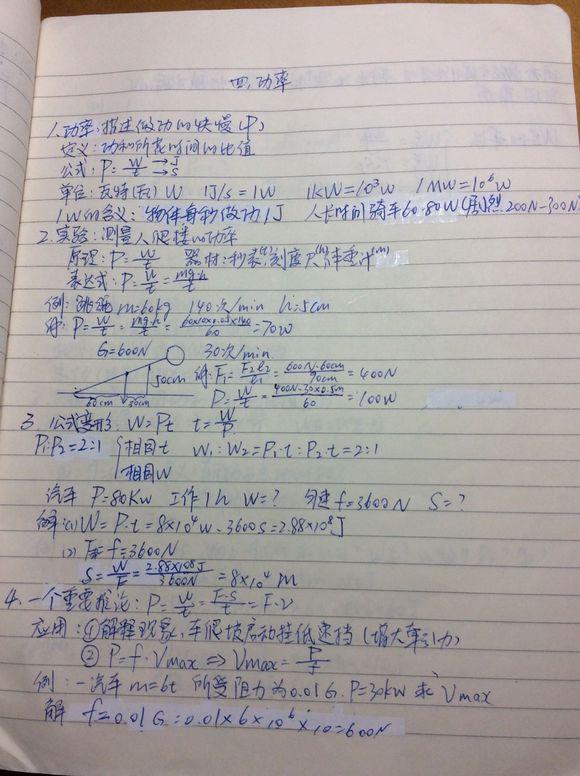 四.功率
1.功率:描述做功的快慢(P)
定义:功和所花时间的比值
公式:P=W/t →J →S
单位:瓦特(瓦) W 1J/s=1W 1KW=10³W 1MW=10⁶W
1W的含义:物体每秒做功1J 人长时间骑车60-80W (剧烈 200N-300N)
2.实验:测量人爬楼的功率
原理:P=W/t 器材:秒表(t) 刻度尺(h) 体重计(m)
表达式:P=W/t=mgh/t
例:跳绳 m=60kg 140次/min h=5cm
解:P=W/t=mgh/t=60×10×0.05×140/60=70W
G=600N 30次/min
50cm 解:F₁=F₂l₂/l₁=600N·60cm/90cm=400N
60cm 30cm P=W/t=400N·30×0.5m/60=100W
3.公式变形:W=Pt t=W/P
P₁:P₂=2:1 {相同t W₁:W₂=P₁·t:P₂·t=2:1
相同W
汽车 P=80Kw 工作1h W=? 匀速f=3600N S=?
解:(1)W=P·t=8×10⁴w·3600s=2.88×10⁸J
(2) F=f=3600N
S=W/F=2.88×10⁸J/3600N=8×10⁴m
4.一个重要推论:P=W/t=F·S/t=F·v
应用:①解释现象,车爬坡启动挂低速挡(增大牵引力)
②P=f·Vmax⇒Vmax=P/f
例:一汽车m=6t 所受阻力为0.01G.P=30kW 求Vmax
解 f=0.01G=0.01×6×10⁶×10=600N